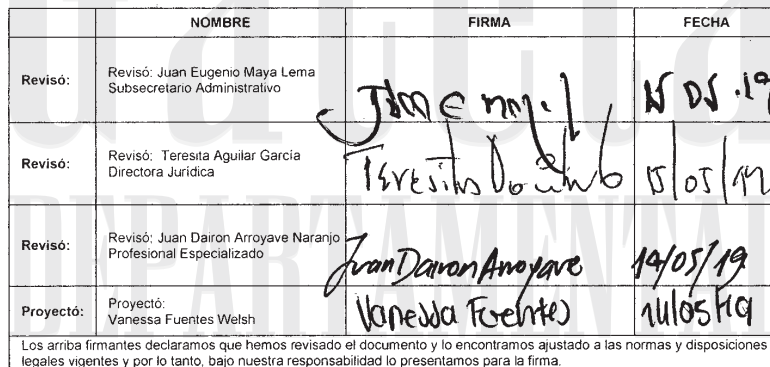 NOMBRE FIRMA FECHA
Revisó: Revisó: Juan Eugenio Maya Lema
Subsecretario Administrativo
15 05.19
Revisó: Revisó: Teresita Aguilar García
Directora Jurídica
Teresita 15/05/19
Revisó: Revisó: Juan Dairon Arroyave Naranjo
Profesional Especializado
Juan Dairon Arroyave 14/05/19
Proyectó: Proyectó:
Vanessa Fuentes Welsh
Vanessa Fuentes 14/05/19
Los arriba firmantes declaramos que hemos revisado el documento y lo encontramos ajustado a las normas y disposiciones
legales vigentes y por lo tanto, bajo nuestra responsabilidad lo presentamos para la firma.
DEPARTAMENTA